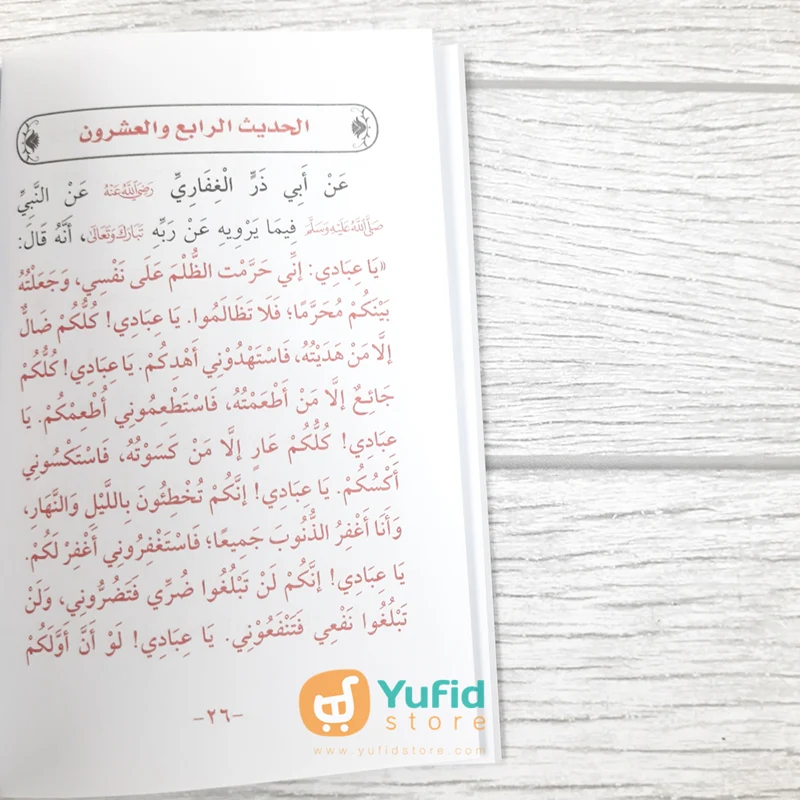 الحديث الرابع والعشرون
عَنْ أَبِي ذَرٍّ الْغِفَارِيِّ رَضِيَ اللَّهُ عَنْهُ عَنْ النَّبِيِّ
صَلَّى اللَّهُ عَلَيْهِ وَسَلَّمَ فِيمَا يَرْوِيهِ عَنْ رَبِّهِ تَبَارَكَ وَتَعَالَى، أَنَّهُ قَالَ:
«يَا عِبَادِي: إنِّي حَرَّمْت الظُّلْمَ عَلَى نَفْسِي، وَجَعَلْتُهُ
بَيْنَكُمْ مُحَرَّمًا؛ فَلَا تَظَالَمُوا. يَا عِبَادِي! كُلُّكُمْ ضَالٌّ
إلَّا مَنْ هَدَيْتُهُ، فَاسْتَهْدُونِي أَهْدِكُمْ. يَا عِبَادِي! كُلُّكُمْ
جَائِعٌ إلَّا مَنْ أَطْعَمْتُهُ، فَاسْتَطْعِمُونِي أُطْعِمْكُمْ. يَا
عِبَادِي! كُلُّكُمْ عَارٍ إلَّا مَنْ كَسَوْتُهُ، فَاسْتَكْسُونِي
أَكْسُكُمْ. يَا عِبَادِي! إنَّكُمْ تُخْطِئُونَ بِاللَّيْلِ وَالنَّهَارِ،
وَأَنَا أَغْفِرُ الذُّنُوبَ جَمِيعًا؛ فَاسْتَغْفِرُونِي أَغْفِرْ لَكُمْ.
يَا عِبَادِي! إنَّكُمْ لَنْ تَبْلُغُوا ضُرِّي فَتَضُرُّونِي، وَلَنْ
تَبْلُغُوا نَفْعِي فَتَنْفَعُونِي. يَا عِبَادِي! لَوْ أَنَّ أَوَّلَكُمْ
-٢٦-
Yufid
store
www.yufidstore.com